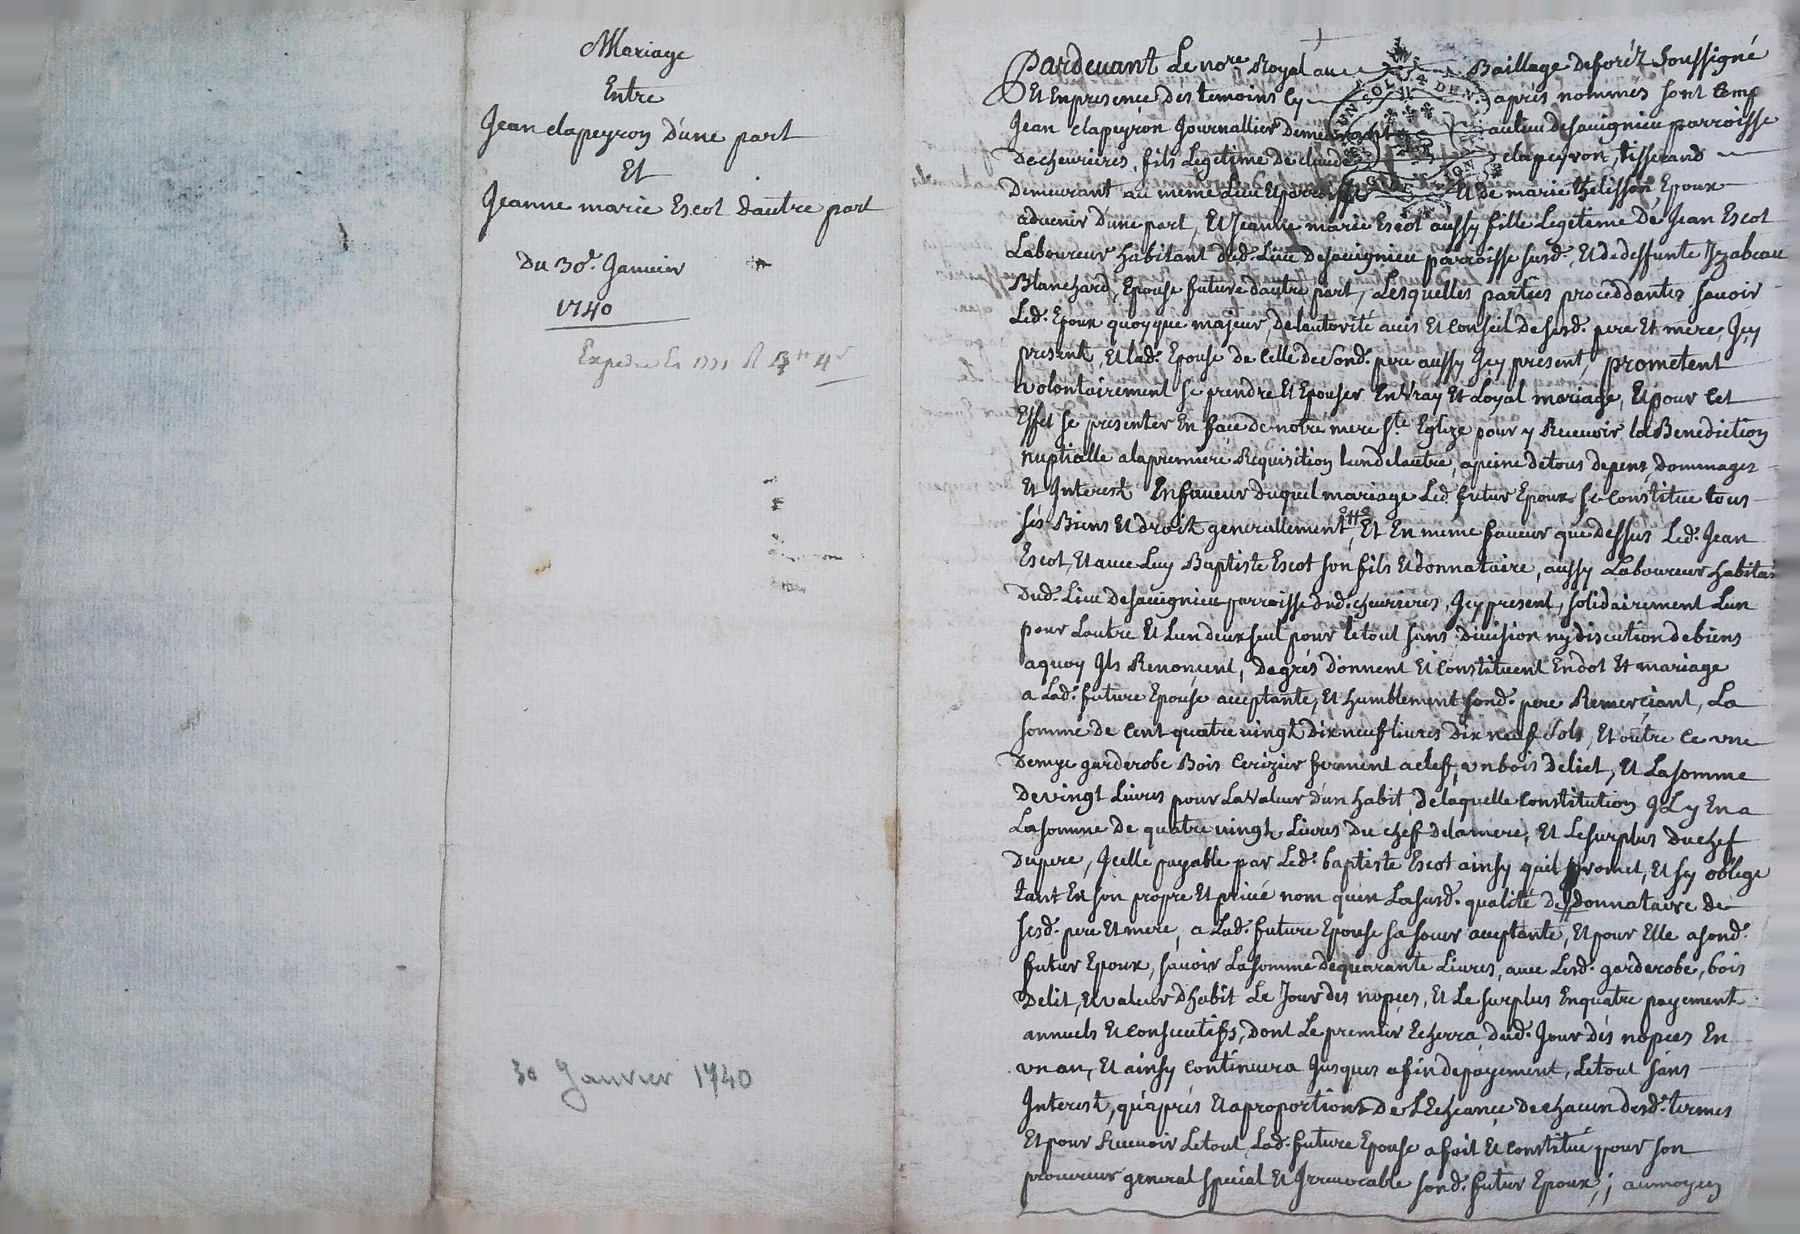 Mariage
Entre
Jean clapeyron d'une part
Et
Jeanne marie Escot dautre part
Du 30e. Janvier
1740
30 Janvier 1740
Pardevant Le nore. Royal au Baillage deforéz Soussigné
Et Enpresence des temoins cy aprés nommés sont Comp
Jean clapeyron Journallier demeurant aulieu desauignieu parroisse
de cheurieres, fils Legitime de claude clapeyron, tisserand
demeurant au même Lieu et parroisse Et de marie thelisson Epoux
aduenir dune part, Et Jeanne marie Escot aussy fille Legitime De Jean Escot
Laboureur habitant dud. Lieu desauignieu parroisse susd. Et dedeffunte Jzabeau
Blanchard, Epouse future dautre part, Lesquelles parties proceddantes sauoir
Led. Epoux quoyque majeur, delautorité auis Et Conseil de sesd. pere Et mere, Jcy
present, Et lad. Epouse de Celle de Sond. pere aussy Jcy present, prometent
volontairement se prendre Et Epouser En Vray Et Loyal mariage, Et pour Cet
Effet se presenter En face de notre mere Ste. Eglize pour y Receuoir la Benediction
nuptialle alapremiere Requisition lundelautre, apeine detous depens, dommages
Et Interest Enfaueur duquel mariage Led. futur Epoux se Constitue tous
sés Biens Et droits generallement, Et En meme faueur que dessus Led. Jean
Escot, Et auec Luy Baptiste Escot son fils Et donnataire, aussy Laboureur habitan
Dud. Lieu desauignieu parroisse dud. cheurieres, Jcy present, solidairement Lun
pour Lautre Et Lun deux seul pour letout sans diuision ny discution debiens
aquoy Jls Renoncent, degrés donnent Et Constituent Endot Et mariage
a Lad. future Epouse acceptante, Et humblement sond. pere Remerçiant, La
somme de Cent quatre uingt dix neuf liures dix neuf Sols, Et outre Ce vne
demye garderobe Bois Cerizier ferment aclef, vn bois deliet, Et La somme
de vingt Liures pour La Valeur dun habit, de laquelle Constitution JL y En a
La somme de quatre uingt Liures du chéf delamere, Et Le surplus duchef
dupere, Jcelle payable par Led. baptiste Escot ainsy quil promet, Et sy oblige
tant En son propre Et priué nom quen La susd. qualité de donnataire de
sesd. pere Et mere, a Lad. future Epouse sa soeur acceptante, Et pour Elle asond.
futur Epoux, sauoir La somme dequarante Liures, auec Lesd. garderobe, bois
Delit, Et valeur dhabit Le Jour des nopces, Et Le surplus Enquatre payement
annuels Et consecutifs, dont Le premier Echerra, dud. Jour dés nopces En
vn an, Et ainsy Continuera Jusques afin depayement, Le tout sans
Interest, qu'aprés Et aproportion De LEcheance de chacun desd. termes
Et pour Receuoir Le tout Lad. future Epouse a fait Et Constitué pour son
procureur general special Et Irreuocable sond. futur Epoux, ; aumoyen